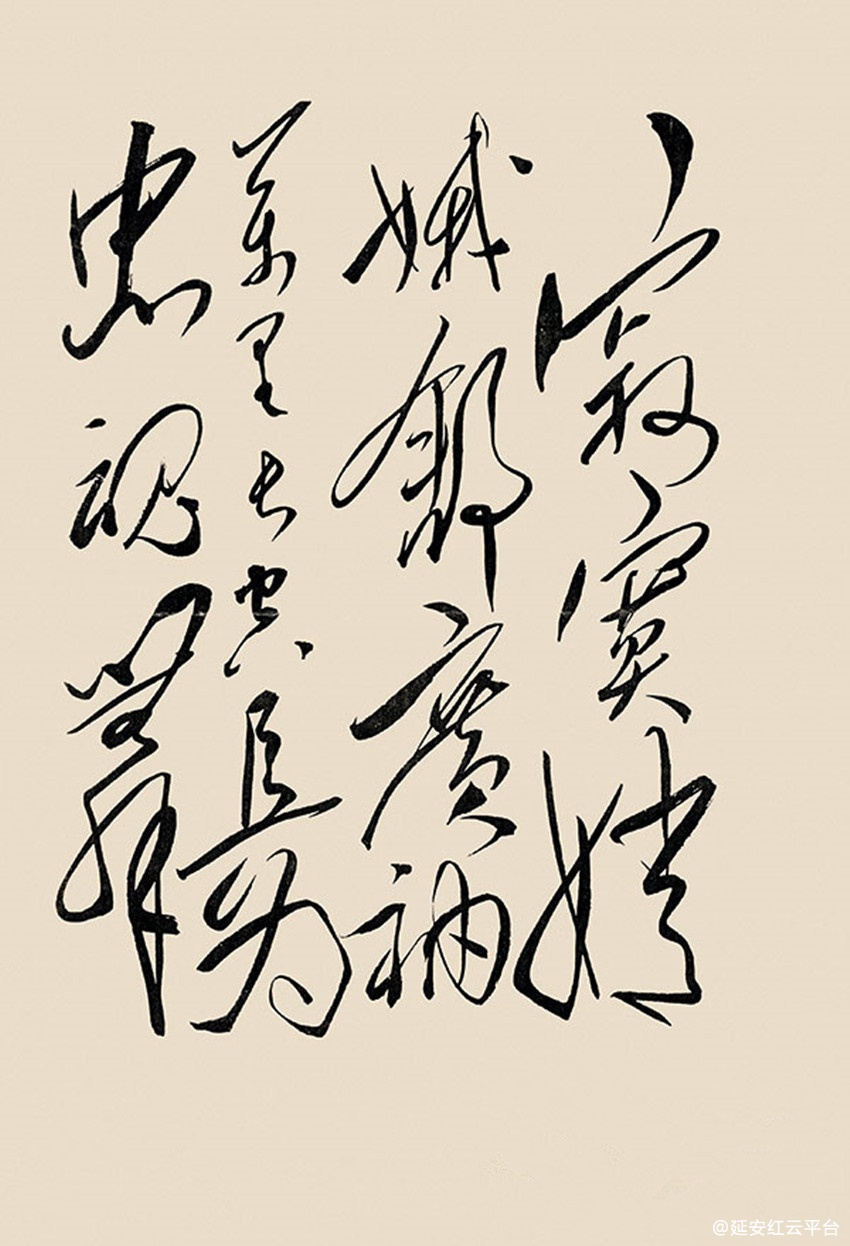 寂寞嫦
娥舒廣袖
萬里长空且為
忠魂舞
@延安红云平台